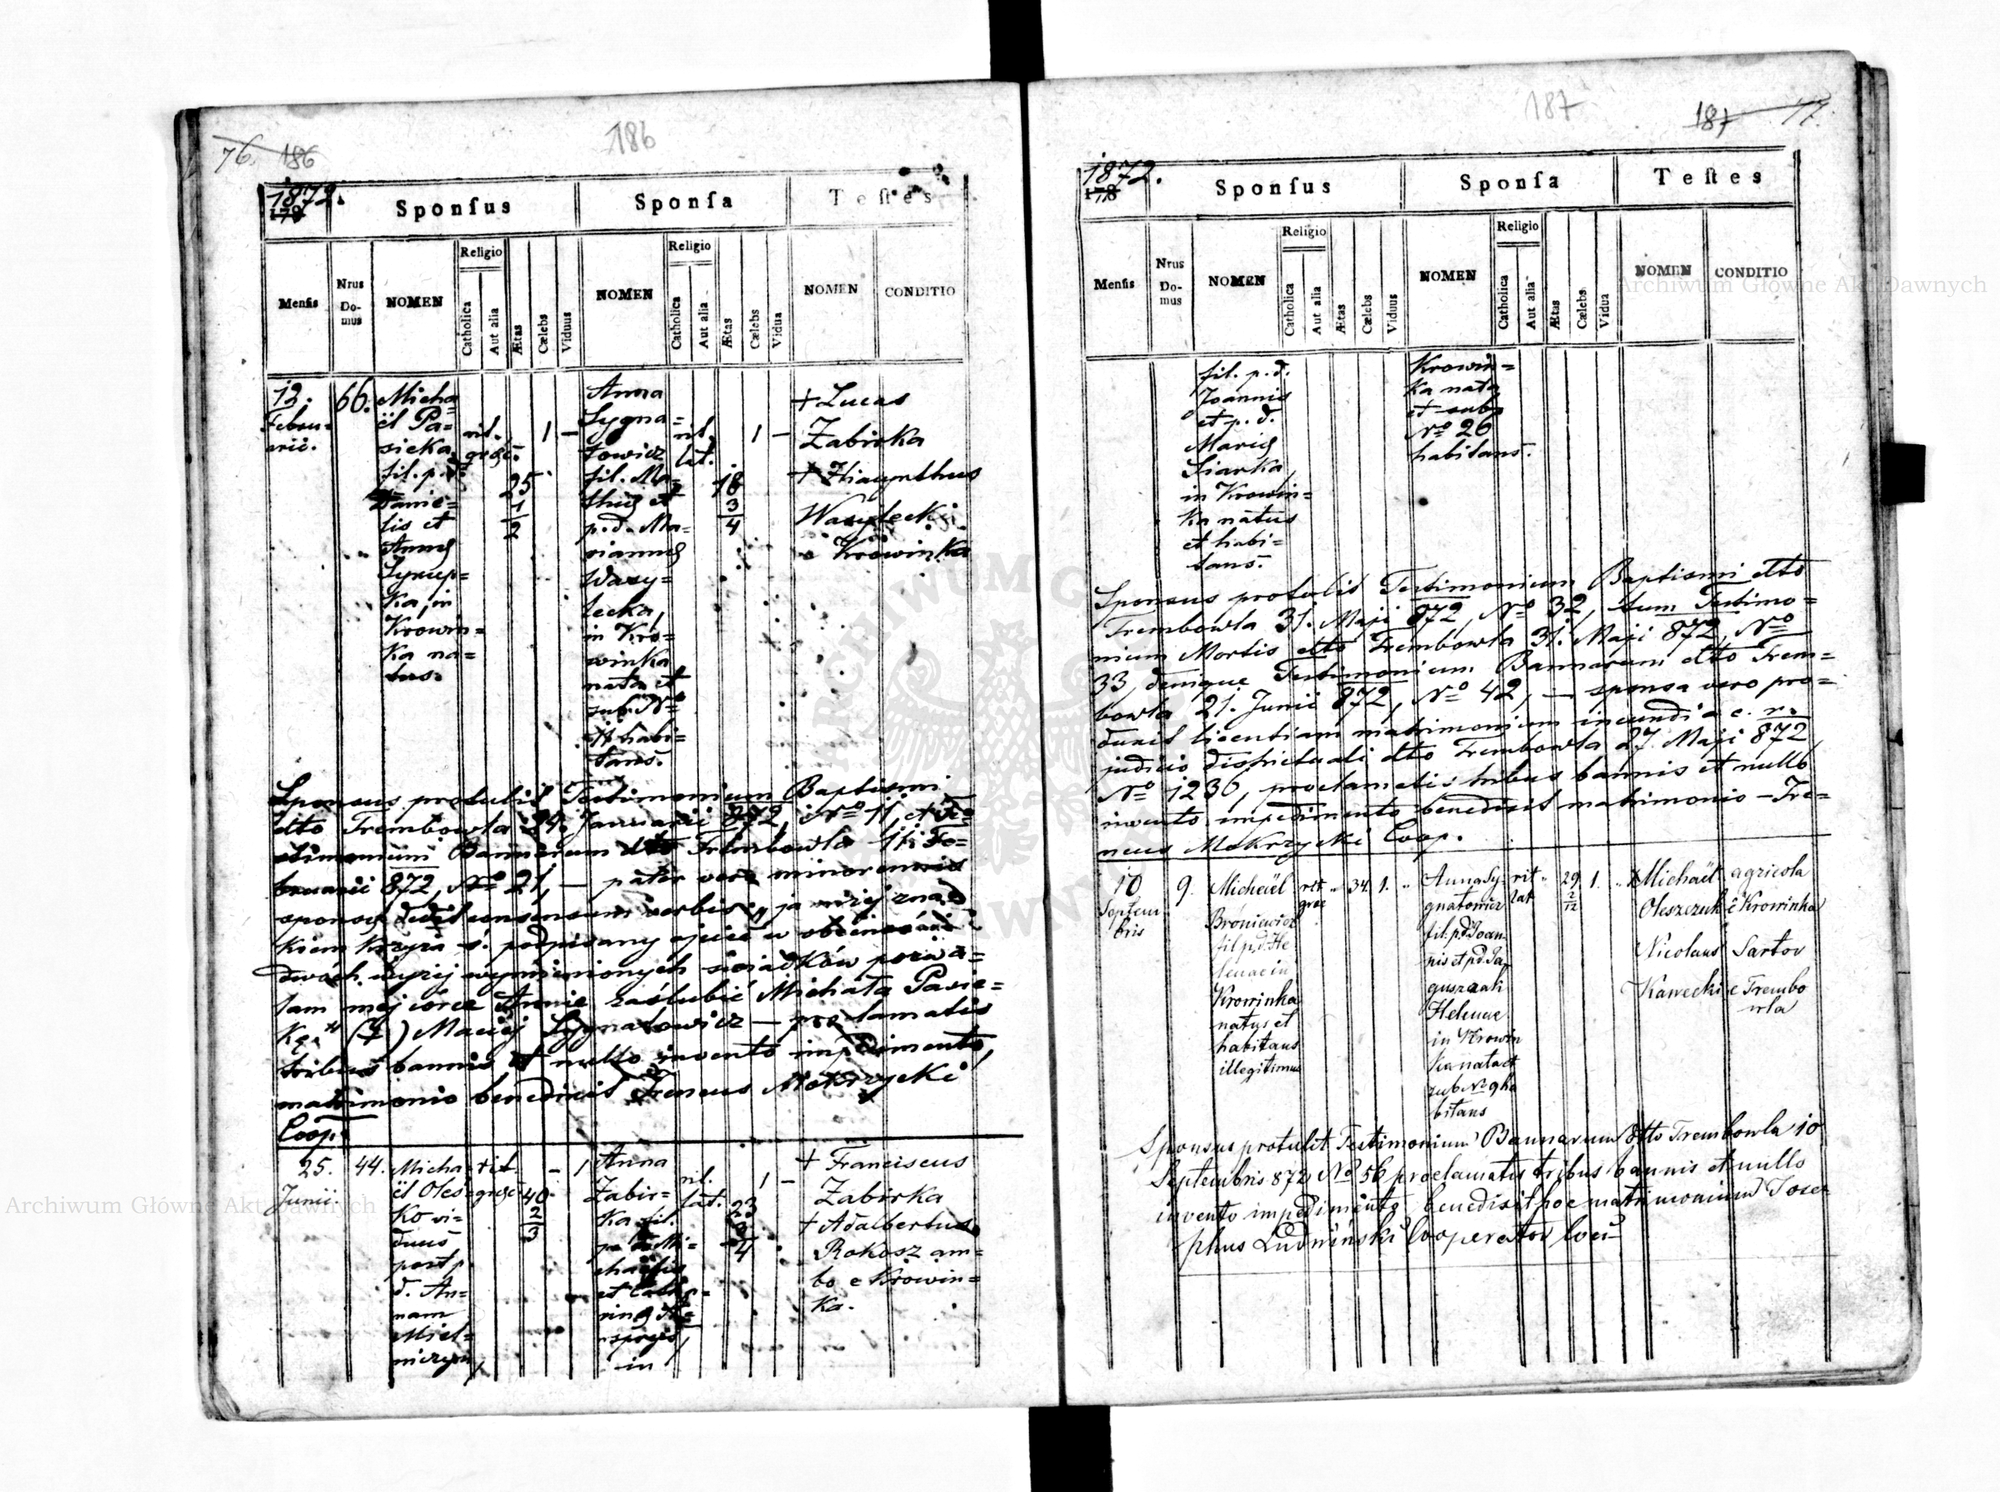 76. 186
186
1872.
178
Sponſus
Sponſa
Teſtes
Menſis
Nrus Domus
NOMEN
Religio
Catholica
Aut alia
Ætas
Cælebs
Viduus
NOMEN
Religio
Catholica
Aut alia
Ætas
Cælebs
Vidua
NOMEN
CONDITIO
12.
Febru=
arii.
66.
Micha=
ël Pa=
sieka
fil. p. d.
Danie=
lis et
Annæ
in
Krowin=
ka na=
tus.
rit.
græc.
25
1
2
1 –
Anna
Sygna=
towicz
fil. Ma=
thiæ et
p. d. Ma=
riannæ
Wasy=
lecka,
in Kro=
winka
nata et
sub Nº
habi=
tans.
rit.
lat.
18
3
4
1 –
+ Lucas
Zabirka
+ Hiacynthus
Wasylecki
e Krowinka
Sponsus protulit Testimonium Baptismi
dto Trembowla 24. Januarii 872, Nº 11, et Te=
stimonium Bannorum dto Trembowla 11. Fe=
bruarii 872, Nº 21, — pater vero minorennis
sponsæ dedit consensum verbis: „ja niżej zna=
kiem krzyża ś. podpisany ojciec w obecności
dwóch wyżej wymienionych świadków pozwa=
lam mej córce Annie zaślubić Michała Pasie=
kę." (+) Maciej Sygnatowicz — proclamatis
tribus bannis et nullo invento impedimento,
matrimonio benedixit Ireneus Mokrzycki
Coop.
25.
Junii.
44.
Micha=
ël Oleś=
ko vi=
duus
post p.
d. An=
nam
Miel=
niczyn,
rit.
græc.
40
2
3
– 1
Anna
Zabir=
ka fil.
p. d. Mi=
chaëlis
et Catha=
rinæ
in
rit.
lat.
23
3
4
1 –
+ Franciscus
Zabirka
+ Adalbertus
Rokosz am=
bo e Krowin=
ka.
187
187 77.
1872.
178
Sponſus
Sponſa
Teſtes
Menſis
Nrus Domus
NOMEN
Religio
Catholica
Aut alia
Ætas
Cælebs
Viduus
NOMEN
Religio
Catholica
Aut alia
Ætas
Cælebs
Vidua
NOMEN
CONDITIO
fil. p. d.
Joannis
et p. d.
Mariæ
Siarka,
in Krowin=
ka natus
et habi=
tans.
Krowin=
ka nata
et sub
Nº 26
habitans.
Sponsus protulit Testimonium Baptismi dto
Trembowla 31. Maji 872, Nº 32, tum Testimo=
nium Mortis dto Trembowla 31. Maji 872, Nº
33, denique Testimonium Bannorum dto Trem=
bowla 21. Junii 872, Nº 42, — sponsa vero pro=
duxit licentiam matrimonium ineundi a c. r.
judicio districtuali dto Trembowla 27. Maji 872,
Nº 1236, proclamatis tribus bannis et nullo
invento impedimento benedixit matrimonio – Ire=
neus Mokrzycki Coop.
10
Septem
bris
9.
Michaël
Broniewicz
fil. p. d. He
lenae in
Krowinka
natus et
habitans
illegitimus
rit
græc
"
34.
1.
"
Anna Sy=
gnatowicz
fil. p. d. Joan
nis et p. d. Ja
guszczak
Helenae
in Krowin
ka nata et
sub Nº 9 ha
bitans
rit
lat
"
29
2
12
1.
"
+ Michaël
Oleszczuk
agricola
e Krowinka
Nicolaus
Kawecki
Sartor
e Trembo
wla
Sponsus protulit Testimonium Bannorum dtto Trembowla 10
Septembris 872 Nº 56 proclamatis tribus bannis et nullo
invento impedimento, benedixit hoc matrimonium Jose
phus Ludwiński Cooperator loci
Archiwum Główne Akt Dawnych
Archiwum Główne Akt Dawnych